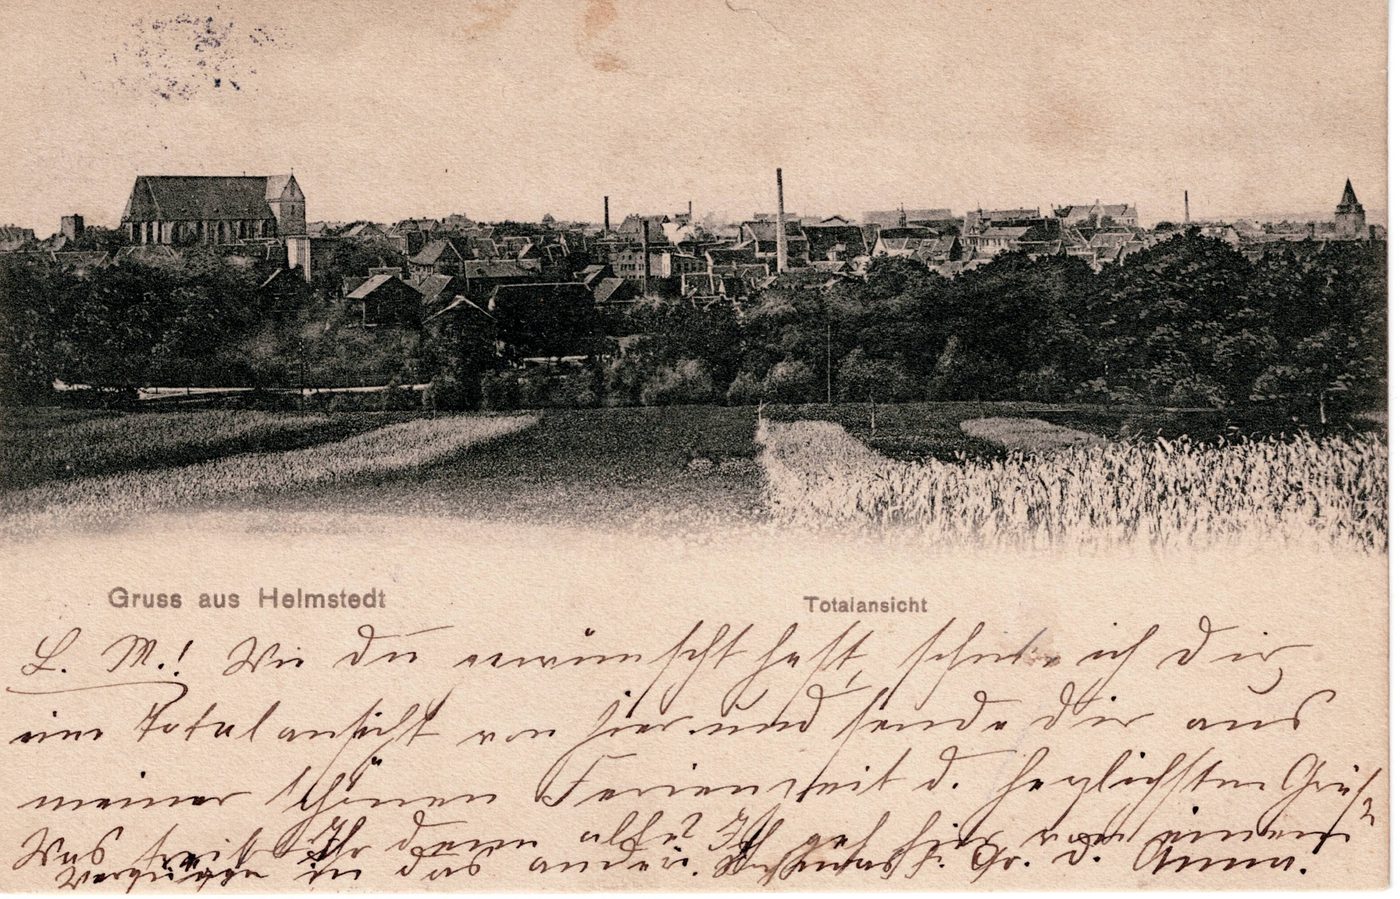 Gruss aus Helmstedt
Totalansicht
L. M.! Wie du gewünscht hast, schicke ich dir
eine Totalansicht von hier und sende dir aus
meiner schönen Ferienzeit d. herzlichsten Grüße
Was treibt Ihr denn alle? Ich geh hier von einem
Vergnügen in das andere. Gr. d. Anna.